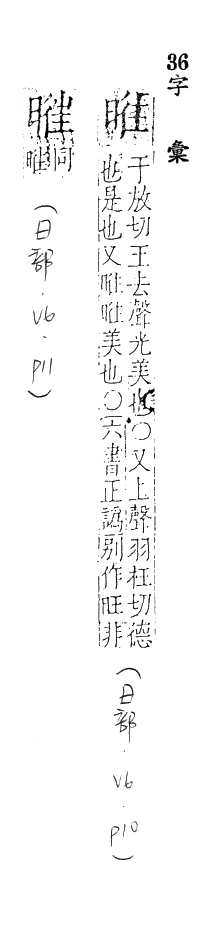 36字 彙
暀
于放切王去聲光美也○又上聲羽枉切德
也是也又暀暀美也○六書正譌別作旺非
(日部.V6.p10)
同
暀
(日部.V6.p11)